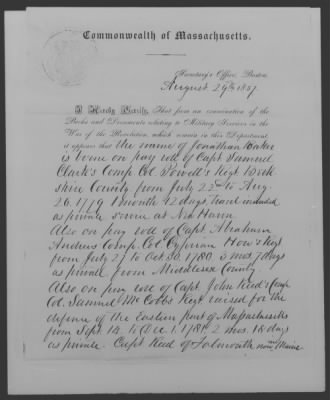 Commonwealth of Massachusetts.
Secretary's Office, Boston
August 29th 1857.
I Hereby Certify, That from an examination of the
Books and Documents relating to Military Services in the
War of the Revolution, which remain in this Department
it appears that the name of Jonathan Baker
is borne on pay roll of Capt Samuel
Clark's Comp. Col Powell's Regt Berk
shire County from July 22nd to Aug.
26. 1779 1 month 12 days, travel included
as private service at New Haven
Also on pay roll of Capt. Abraham
Andrews Comp. Col Cyprian How's Regt
from July 27 to Oct 30. 1780. 3 mos 7 days
as private from Middlesex County.
Also on pay roll of Capt. John Reed's Comp
Col. Samuel McCobbs Regt. raised for the
defence of the Eastern part of Massachusetts
from Sept. 14. to Dec. 1. 1781. 2 mos. 18 days
as private. Capt Reed of Falmouth now in Maine